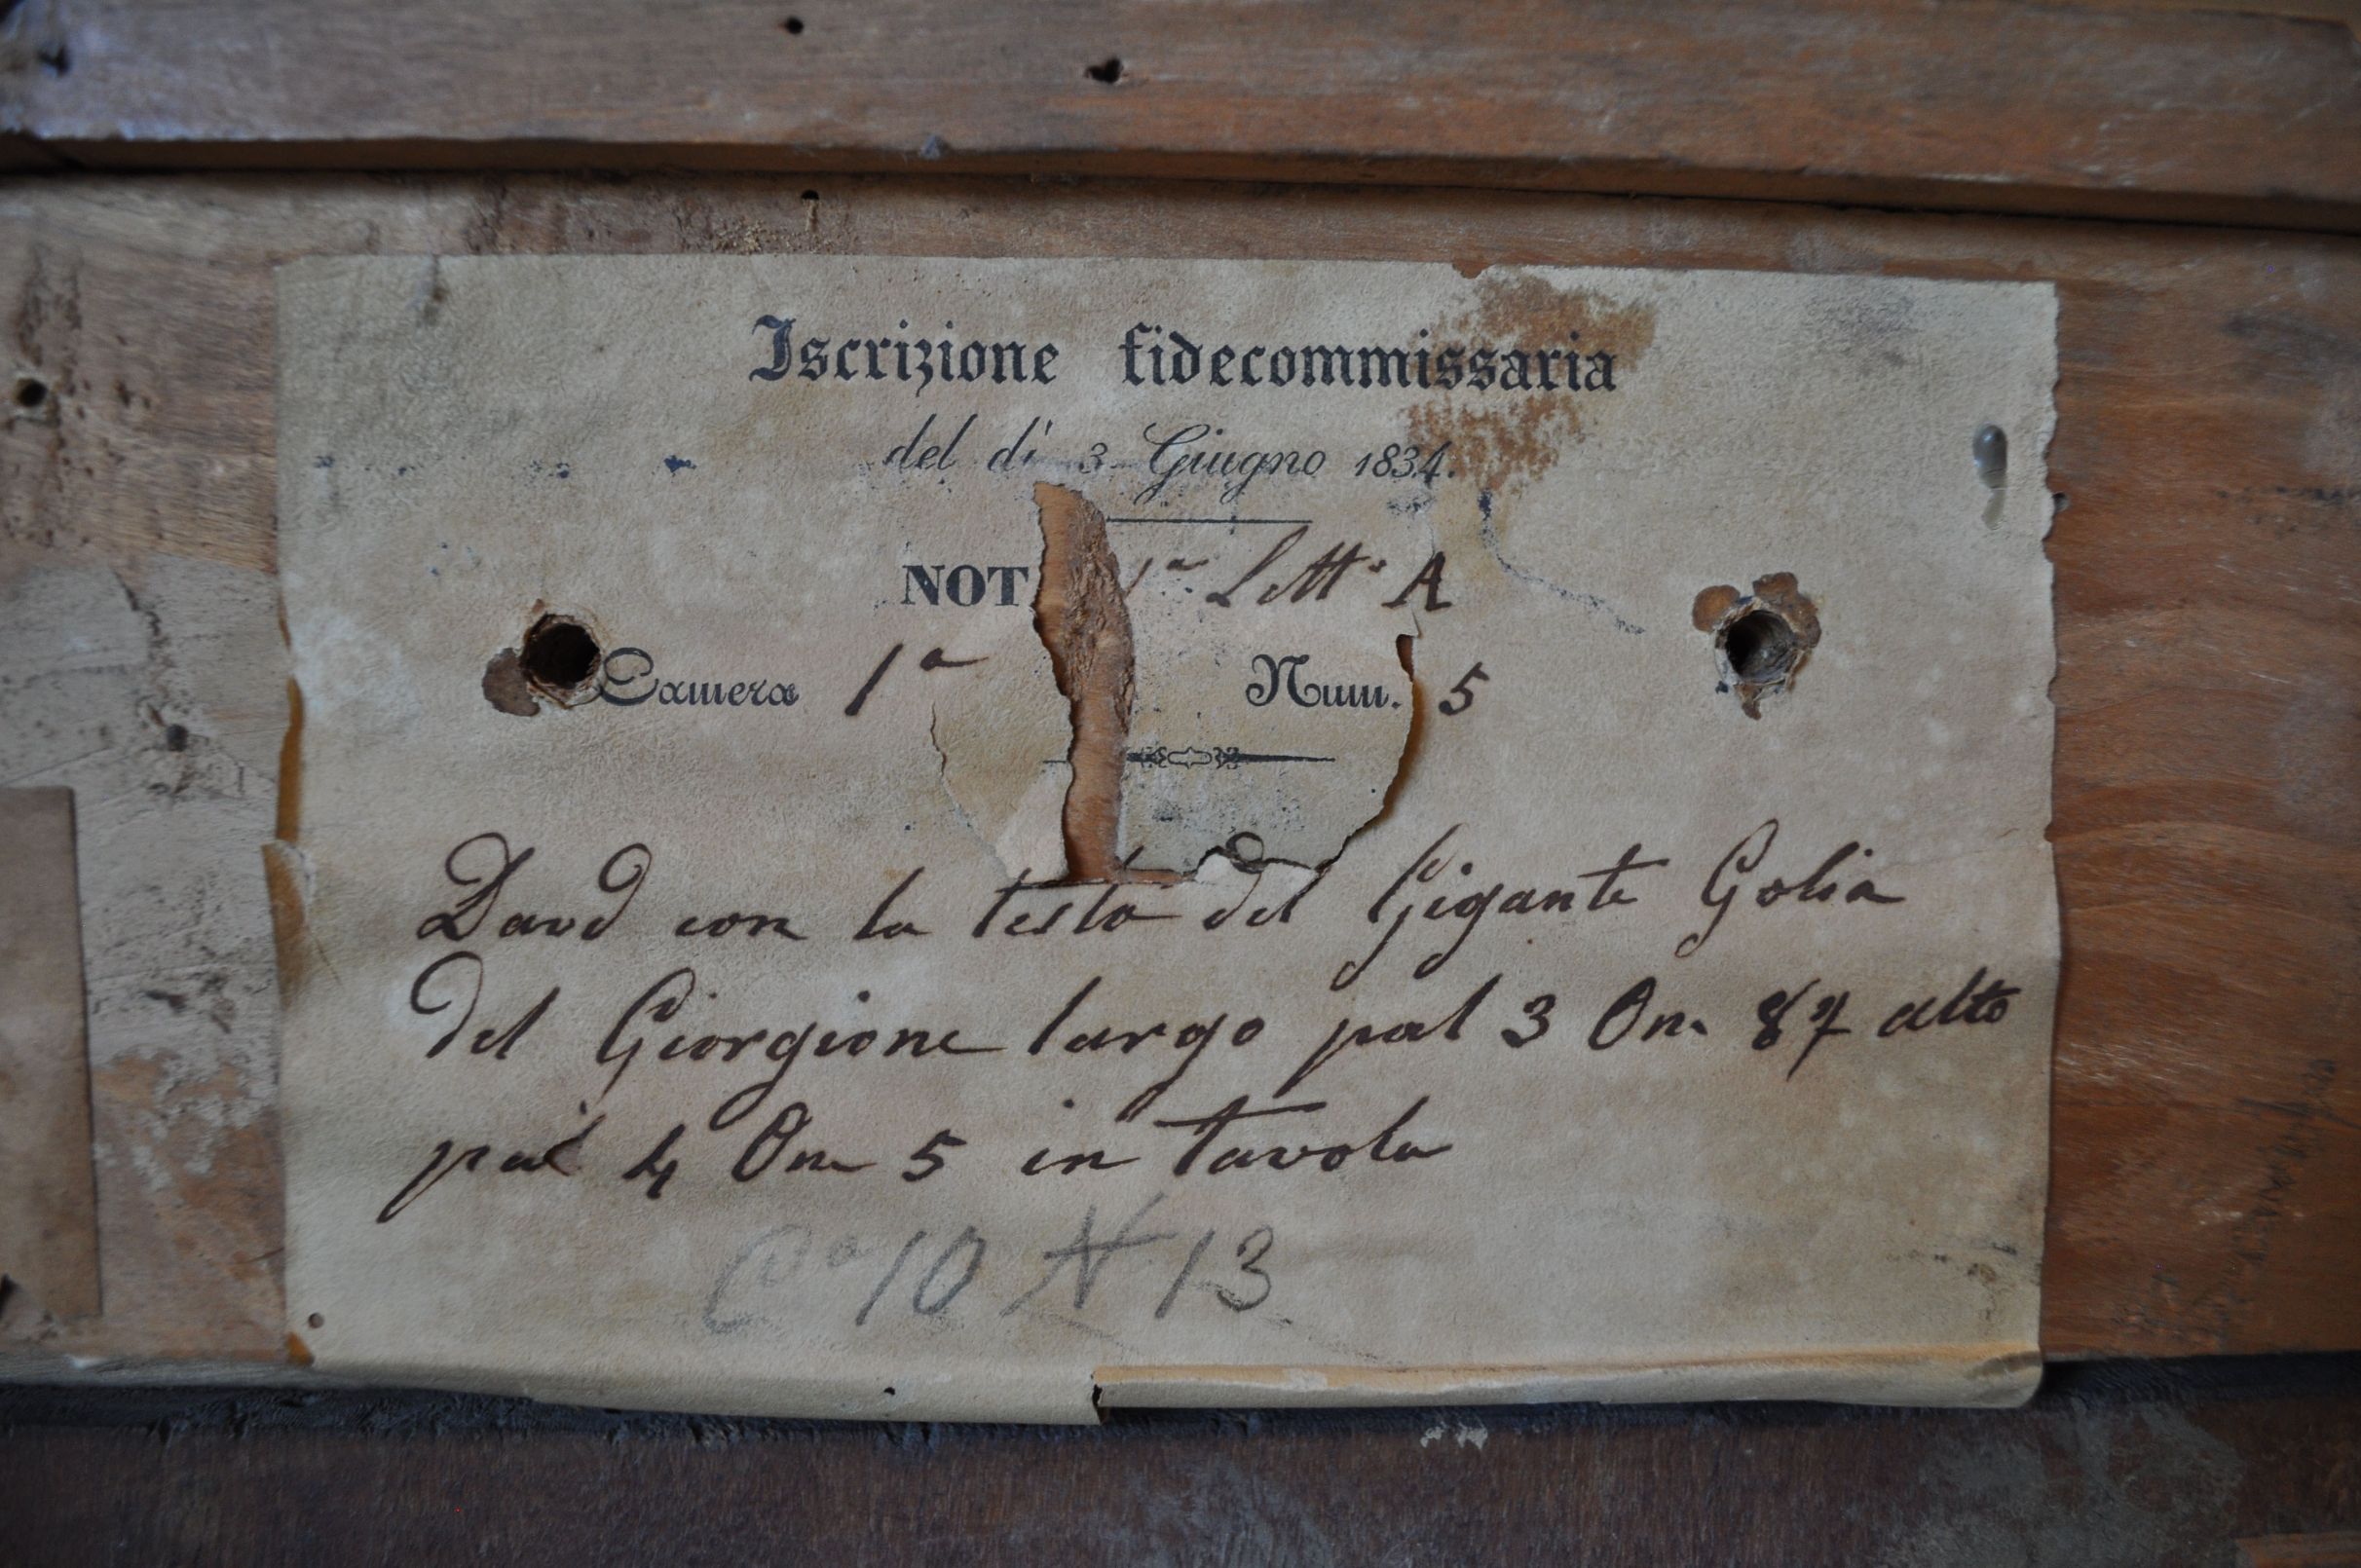 Iscrizione fidecommissaria
del dì 3 Giugno 1834.
NOT 1ª Lett. A
Camera 1ª Num. 5
David con la testa del Gigante Golia
del Giorgione largo pal 3 On. 87 alto
pal 4 On 5 in tavola
Cª 10 N 13